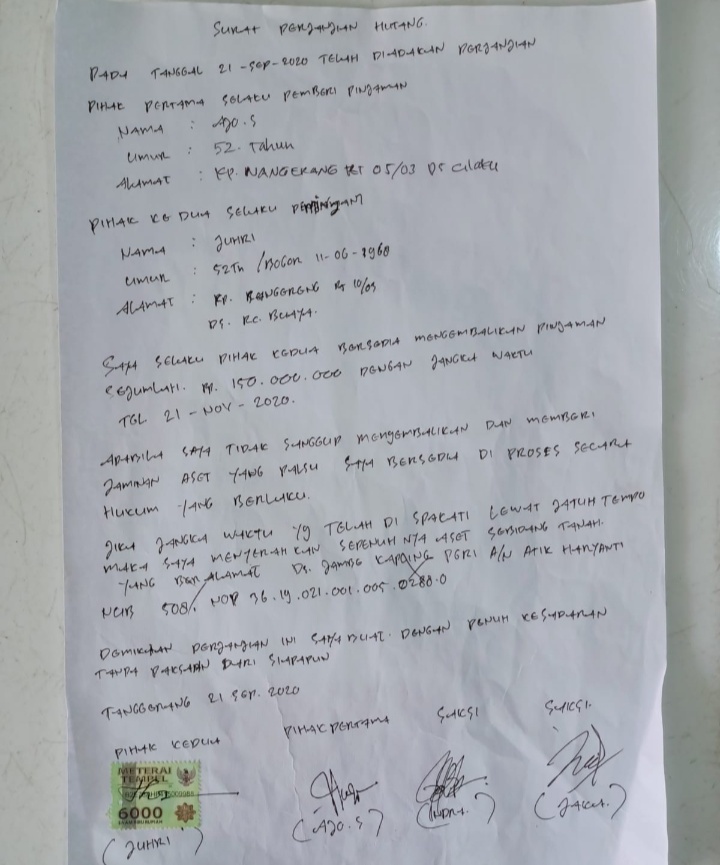 SURAT PERJANJIAN HUTANG.
PADA TANGGAL 21-SEP-2020 TELAH DIADAKAN PERJANJIAN
PIHAK PERTAMA SELAKU PEMBERI PINJAMAN
NAMA : AJO.S
UMUR : 52. Tahun
ALAMAT : KP. NANGERANG RT 05/03 DS Cilaku
PIHAK KEDUA SELAKU
NAMA : JUHRI
UMUR : 52Th /BOGOR 11-06-1968
ALAMAT : KP. RT 10/05
DS. RC. BUAYA.
SAYA SELAKU PIHAK KEDUA BERSEDIA MENGEMBALIKAN PINJAMAN
SEJUMLAH. RP. 150.000.000 DENGAN JANGKA WAKTU
TGL 21-NOV-2020.
APABILA SAYA TIDAK SANGGUP MENGEMBALIKAN DAN MEMBERI
JAMINAN ASET YANG PALSU SAYA BERSEDIA DI PROSES SECARA
HUKUM YANG BERLAKU.
JIKA JANGKA WAKTU YG TELAH DI SPAKATI LEWAT JATUH TEMPO
MAKA SAYA MENYERAHKAN SEPENUHNYA ASET SEBIDANG TANAH.
YANG BERALAMAT DS. JAMBE KAPLING PGRI A/N ATIK HARYANTI
508/. NOP 36.19.021.001.005.0288.0
DEMIKIAN PERJANJIAN INI SAYA BUAT. DENGAN PENUH KESADARAN
TANPA PAKSAAN DARI SIAPAPUN
TANGGERANG 21 SEP. 2020
PIHAK KEDUA PIHAK PERTAMA SAKSI SAKSI.
METERAI
TEMPEL
6000
ENAM RIBU RUPIAH
(JUHRI) (AJO.S) (INDRA.)